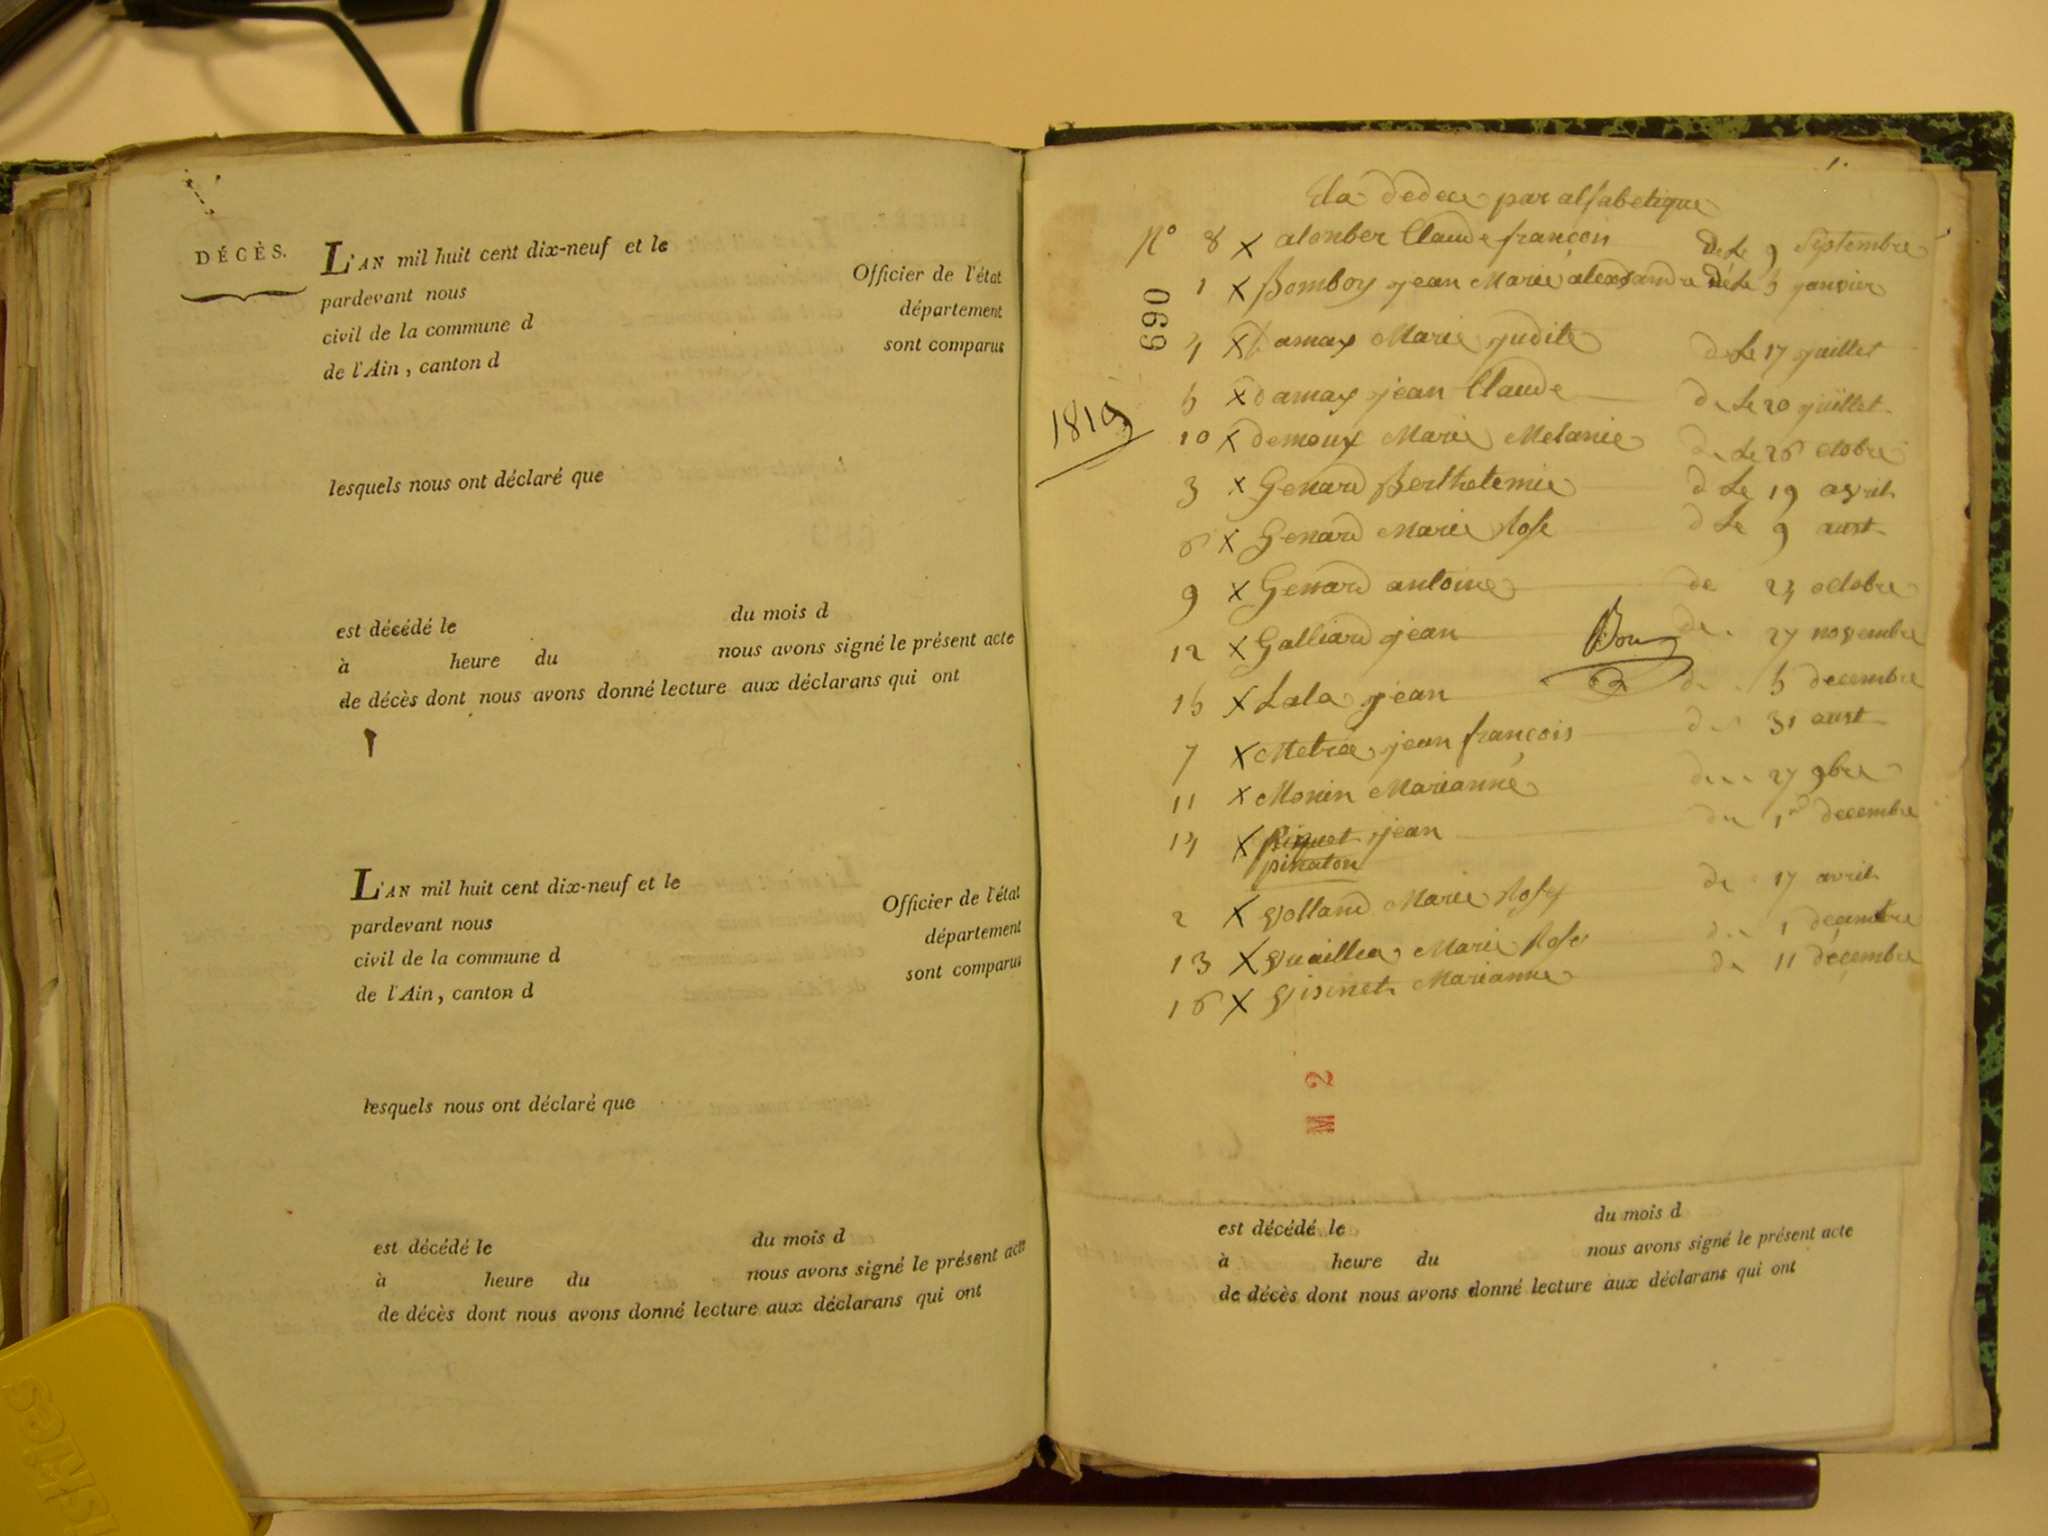 DÉCÈS.
L'AN mil huit cent dix-neuf et le
pardevant nous Officier de l'état
civil de la commune d département
de l'Ain, canton d sont comparus
lesquels nous ont déclaré que
est décédé le du mois d
à heure du nous avons signé le présent acte
de décès dont nous avons donné lecture aux déclarans qui ont
L'AN mil huit cent dix-neuf et le
pardevant nous Officier de l'état
civil de la commune d département
de l'Ain, canton d sont comparus
lesquels nous ont déclaré que
est décédé le du mois d
à heure du nous avons signé le présent acte
de décès dont nous avons donné lecture aux déclarans qui ont
1.
Eta dedece par alfabetique
N° 8 x alonber Claude françois de Le 9 Septembre
1 x Bomboy jean Marie alexsandre de Le 5 janvier
690
4 x Damax Marie judite de Le 17 juillet
1819
5 x damax jean Claude de Le 20 juillet
10 x demoux Marie Melanie de Le 26 octobre
3 x Genard Berthelemie d Le 19 avril
6 x Genard Marie Rose d Le 9 aust
9 x Genard antoine de 23 octobre
12 x Galliard jean de 27 novembre
Bon
15 x Lala jean de 5 decembre
7 x Metra jean françois de 31 aust
11 x Monin Marianne 27 9bre
14 x Piquet jean du 1er decembre
pinaton
2 x Volland Marie Rose de 17 avril
13 x Vuaillea Marie Rose 1 decembre
16 x Visinet Marianne de 11 decembre
M 2
est décédé le du mois d
à heure du nous avons signé le présent acte
de décès dont nous avons donné lecture aux déclarans qui ont